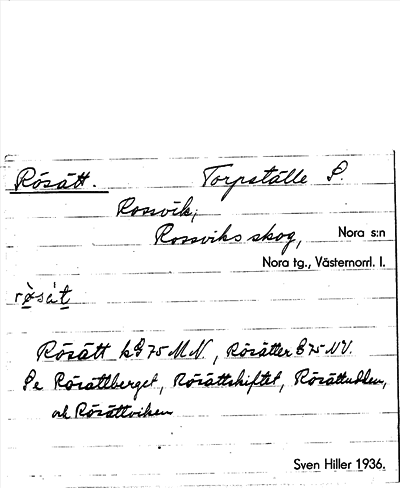 Rösätt. Torpställe P.
Rossvik,
Rossviks skog, Nora s:n
Nora tg., Västernorrl. l.
Rösätt, Rösätter
Se Rösättberget, Rösättskiftet, Rösättudden,
och Rösättviken
Sven Hiller 1936.